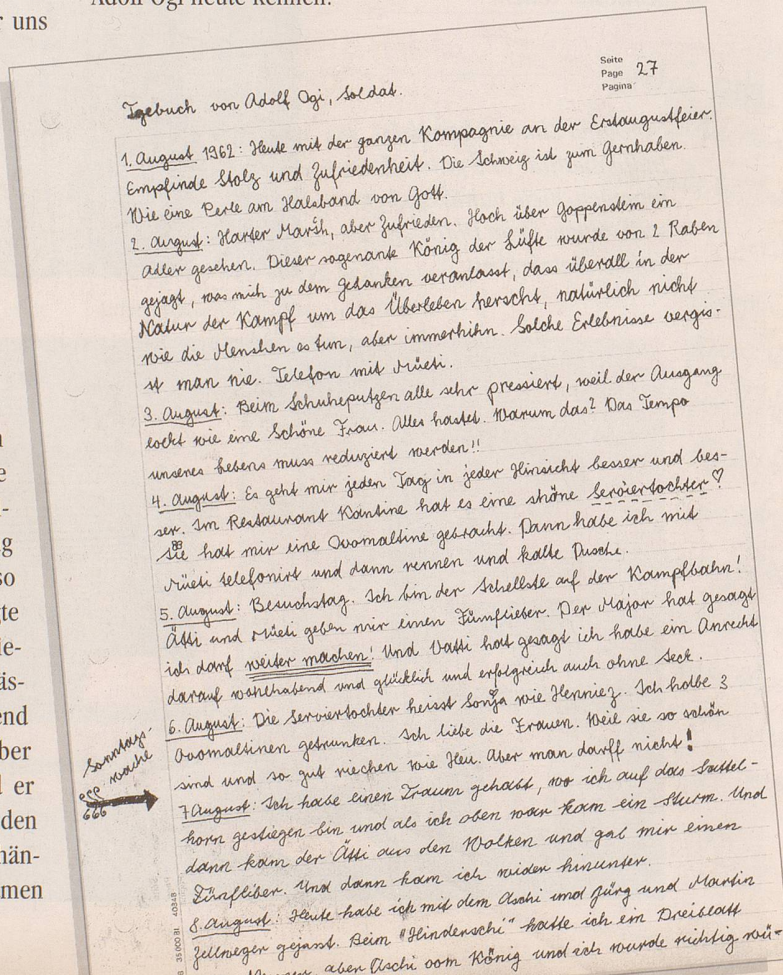 Adolf Ogi heute kennen.
r uns
Seite
Page 27
Pagina
Tagebuch von Adolf Ogi, Soldat.
1. August 1962: Heute mit der ganzen Kompagnie an der Erstaugustfeier.
Empfinde Stolz und Zufriedenheit. Die Schweiz ist zum Gernhaben.
Wie eine Perle am Halsband von Gott.
2. August: Harter Marsh, aber zufrieden. Hoch über Goppenstein ein
Adler gesehen. Dieser sogenante König der Lüfte wurde von 2 Raben
gejagt, was mich zu dem Gedanken veranlasst, dass überall in der
Natur der Kampf um das Überleben herscht, natürlich nicht
wie die Menschen es tun, aber immerhihn. Solche Erlebnisse vergis-
st man nie. Telefon mit Müeti.
3. August: Beim Schuheputzen alle sehr pressiert, weil der Ausgang
lockt wie eine Schöne Frau. Alles hastet. Warum das? Das Tempo
unseres Lebens muss reduziert werden!!
4. August: Es geht mir jeden Tag in jeder Hinsicht besser und bes-
ser. Im Restaurant Kantine hat es eine shöne Serviertochter ♡
sie hat mir eine Ovomaltine gebracht. Dann habe ich mit
Müeti telefonirt und dann rennen und kalte Dusche.
5. August: Besuchstag. Ich bin der Schellste auf der Kampfbahn!
Ätti und Müeti geben mir einen Fünflieber. Der Major hat gesagt
ich darf weiter machen! Und Vatti hat gesagt ich habe ein Anrecht
darauf wohlhabend und glücklich und erfolgreich auch ohne Seck.
6. August: Die Serviertochter heisst Sonja wie Henniez. Ich habe 3
Ovomaltinen getrunken. Ich liebe die Frauen. Weil sie so schön
sind und so gut riechen wie Heu. Aber man darff nicht!
Sonntags-
wache
7 August: Ich habe einen Traum gehabt, wo ich auf das Sattel-
horn gestiegen bin und als ich oben war kam ein Sturm. Und
dann kam der Ätti aus den Wolken und gab mir einen
Fünfliber. Und dann kam ich wider hinunter.
8. August: Heute habe ich mit dem Aschi und Jürg und Martin
Zellweger gejasst. Beim "Hinderschi" hatte ich ein Dreiblatt
aber Aschi vom König und ich wurde richtig wü-
35 000 81 40348
g
so
gte
ie-
äs-
end
ber
d er
den
män-
men